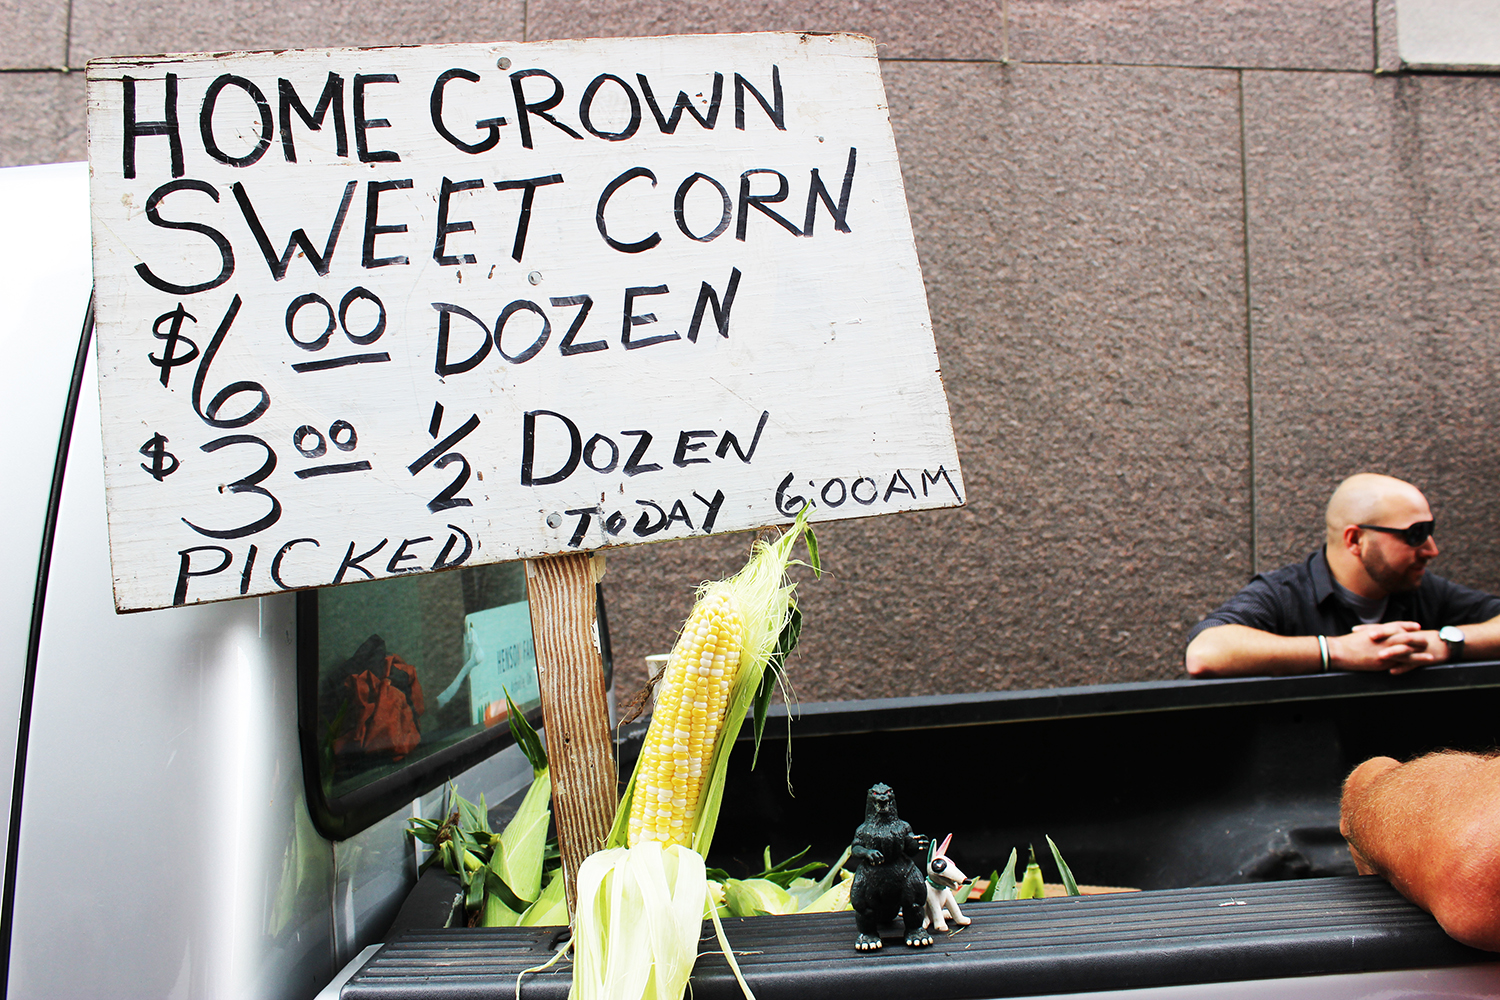 HOME GROWN
SWEET CORN
$6.00 DOZEN
$3.00 1/2 DOZEN
PICKED TODAY 6:00AM
HENSON